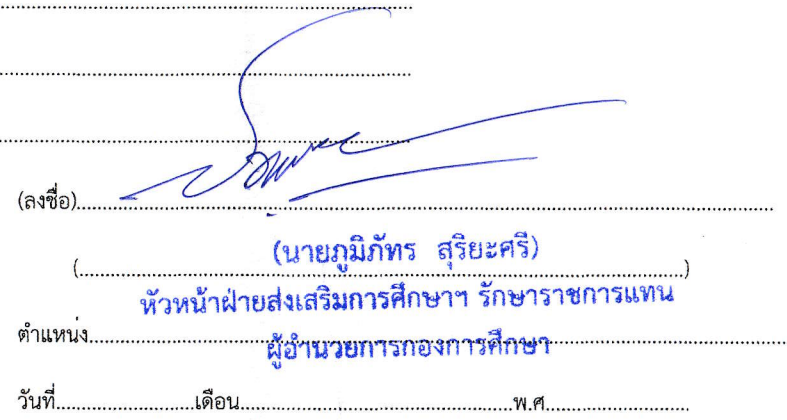 (ลงชื่อ)
(นายภูมิภัทร สุริยะศรี)
(........................)
หัวหน้าฝ่ายส่งเสริมการศึกษาฯ รักษาราชการแทน
ตำแหน่ง ผู้อำนวยการกองการศึกษา
วันที่........................เดือน........................พ.ศ........................